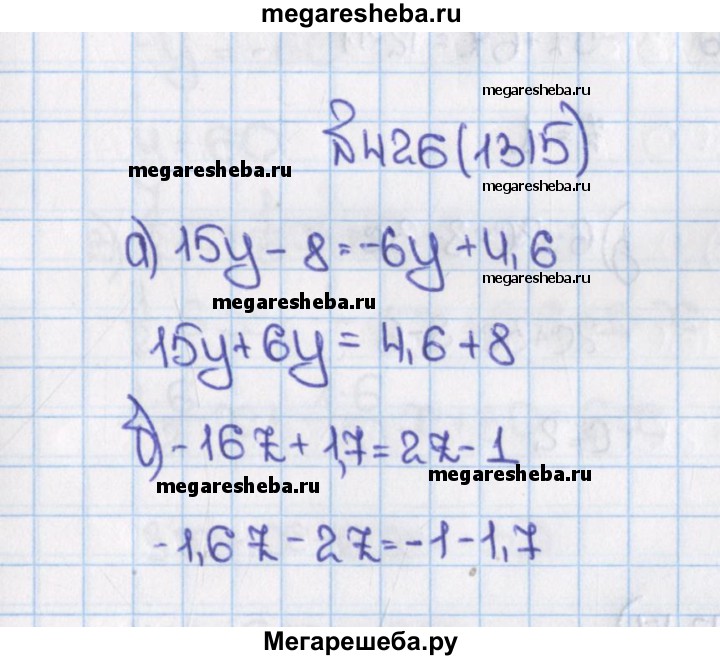 megaresheba.ru
megaresheba.ru
№426(1315)
megaresheba.ru
megaresheba.ru
а) 15y - 8 = -6y + 4,6
megaresheba.ru
megaresheba.ru
15y + 6y = 4,6 + 8
б) -16z + 1,7 = 2z - 1
megaresheba.ru
megaresheba.ru
-1,6z - 2z = -1 - 1,7
Мегарешеба.ру